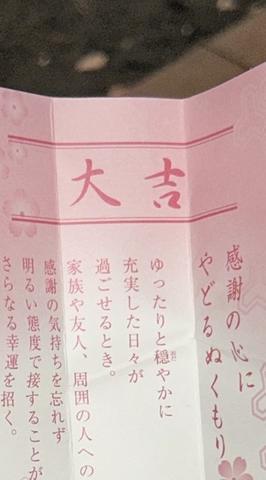 大吉
感謝の心に
やどるぬくもり
ゆったりと穏やかに
充実した日々が
過ごせるとき。
家族や友人、周囲の人への
感謝の気持ちを忘れず
明るい態度で接することが
さらなる幸運を招く。